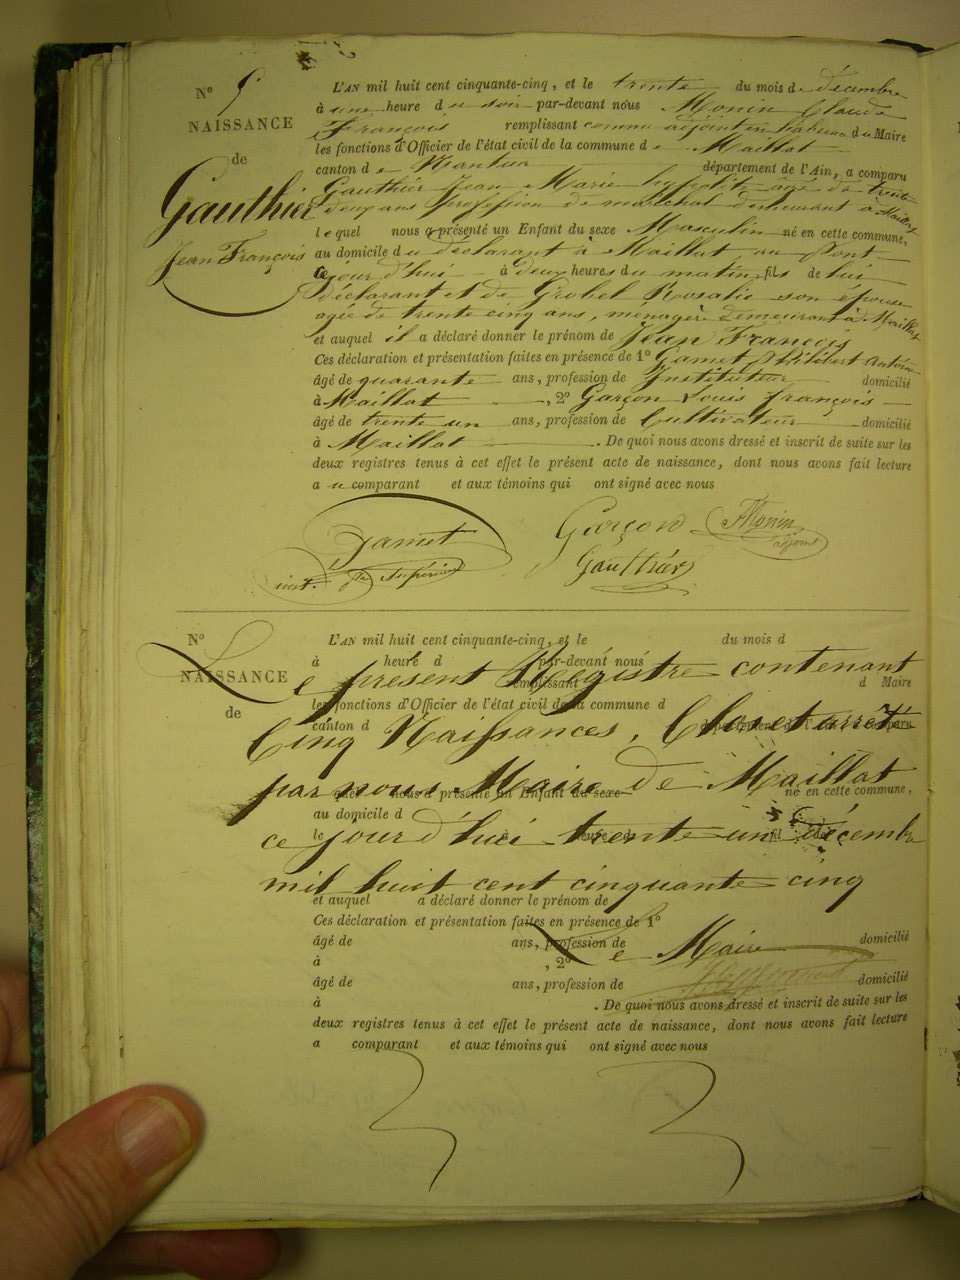 N° 5
NAISSANCE
de
Gauthier
Jean François
L'AN mil huit cent cinquante-cinq, et le trente du mois de décembre
à une heure du soir par-devant nous Monin Claude
François remplissant comme adjoint en du Maire
les fonctions d'Officier de l'état civil de la commune de Maillat
canton de Nantua département de l'Ain, a comparu
Gauthier Jean Marie hypolite âgé de trente
deux ans profession de maréchal demeurant à Maillat
lequel nous a présenté un Enfant du sexe Masculin né en cette commune,
au domicile du déclarant à Maillat au Pont
ce jour d'hui à deux heures du matin, fils de lui
déclarant et de Grobel Rosalie son épouse
agée de trente cinq ans, ménagère demeurant à Maillat
et auquel il a déclaré donner le prénom de Jean François
Ces déclaration et présentation faites en présence de 1° Gamet Philibert Antoine
âgé de quarante ans, profession de Instituteur domicilié
à Maillat, 2° Garçon Louis françois
âgé de trente un ans, profession de Cultivateur domicilié
à Maillat. De quoi nous avons dressé et inscrit de suite sur les
deux registres tenus à cet effet le présent acte de naissance, dont nous avons fait lecture
au comparant et aux témoins qui ont signé avec nous
Gamet Garçon FMonin
adjoint
inst. Supérieur Gauthier
N°
NAISSANCE
de
L'AN mil huit cent cinquante-cinq, et le du mois d
à heure d par-devant nous
Le présent Registre contenant
remplissant d Maire
les fonctions d'Officier de l'état civil de la commune d
canton d département de l'Ain, a comparu
Cinq Naissances, Clos et arrêté
par nous Maire de Maillat
quel nous a présenté un Enfant du sexe né en cette commune,
au domicile d
le à heure d fil de
ce jour d'hui trente un décembre
mil huit cent cinquante cinq
et auquel a déclaré donner le prénom de
Ces déclaration et présentation faites en présence de 1°
âgé de ans, profession de domicilié
Le Maire
à , 2°
âgé de ans, profession de domicilié
à . De quoi nous avons dressé et inscrit de suite sur les
deux registres tenus à cet effet le présent acte de naissance, dont nous avons fait lecture
a comparant et aux témoins qui ont signé avec nous